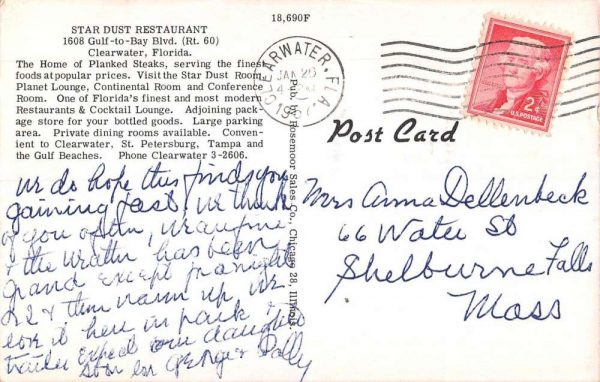 18,690F
STAR DUST RESTAURANT
1608 Gulf-to-Bay Blvd. (Rt. 60)
Clearwater, Florida.
The Home of Planked Steaks, serving the finest
foods at popular prices. Visit the Star Dust Room,
Planet Lounge, Continental Room and Conference
Room. One of Florida's finest and most modern
Restaurants & Cocktail Lounge. Adjoining pack-
age store for your bottled goods. Large parking
area. Private dining rooms available. Conven-
ient to Clearwater, St. Petersburg, Tampa and
the Gulf Beaches. Phone Clearwater 3-2606.
we do hope this finds you
gaining fast. we think
of you often, we are fine
& the weather has been
grand except for a night
& then warm up. we
love it here in park
trailer expect our daughter
soon
Sally
Pub. Rosemoor Sales Co., Chicago 28, Illinois
CLEARWATER, FLA.
JAN 25
195
2¢
U.S. POSTAGE
Post Card
Mrs Anna Dellenbeck
66 Water St
Shelburne Falls
Mass